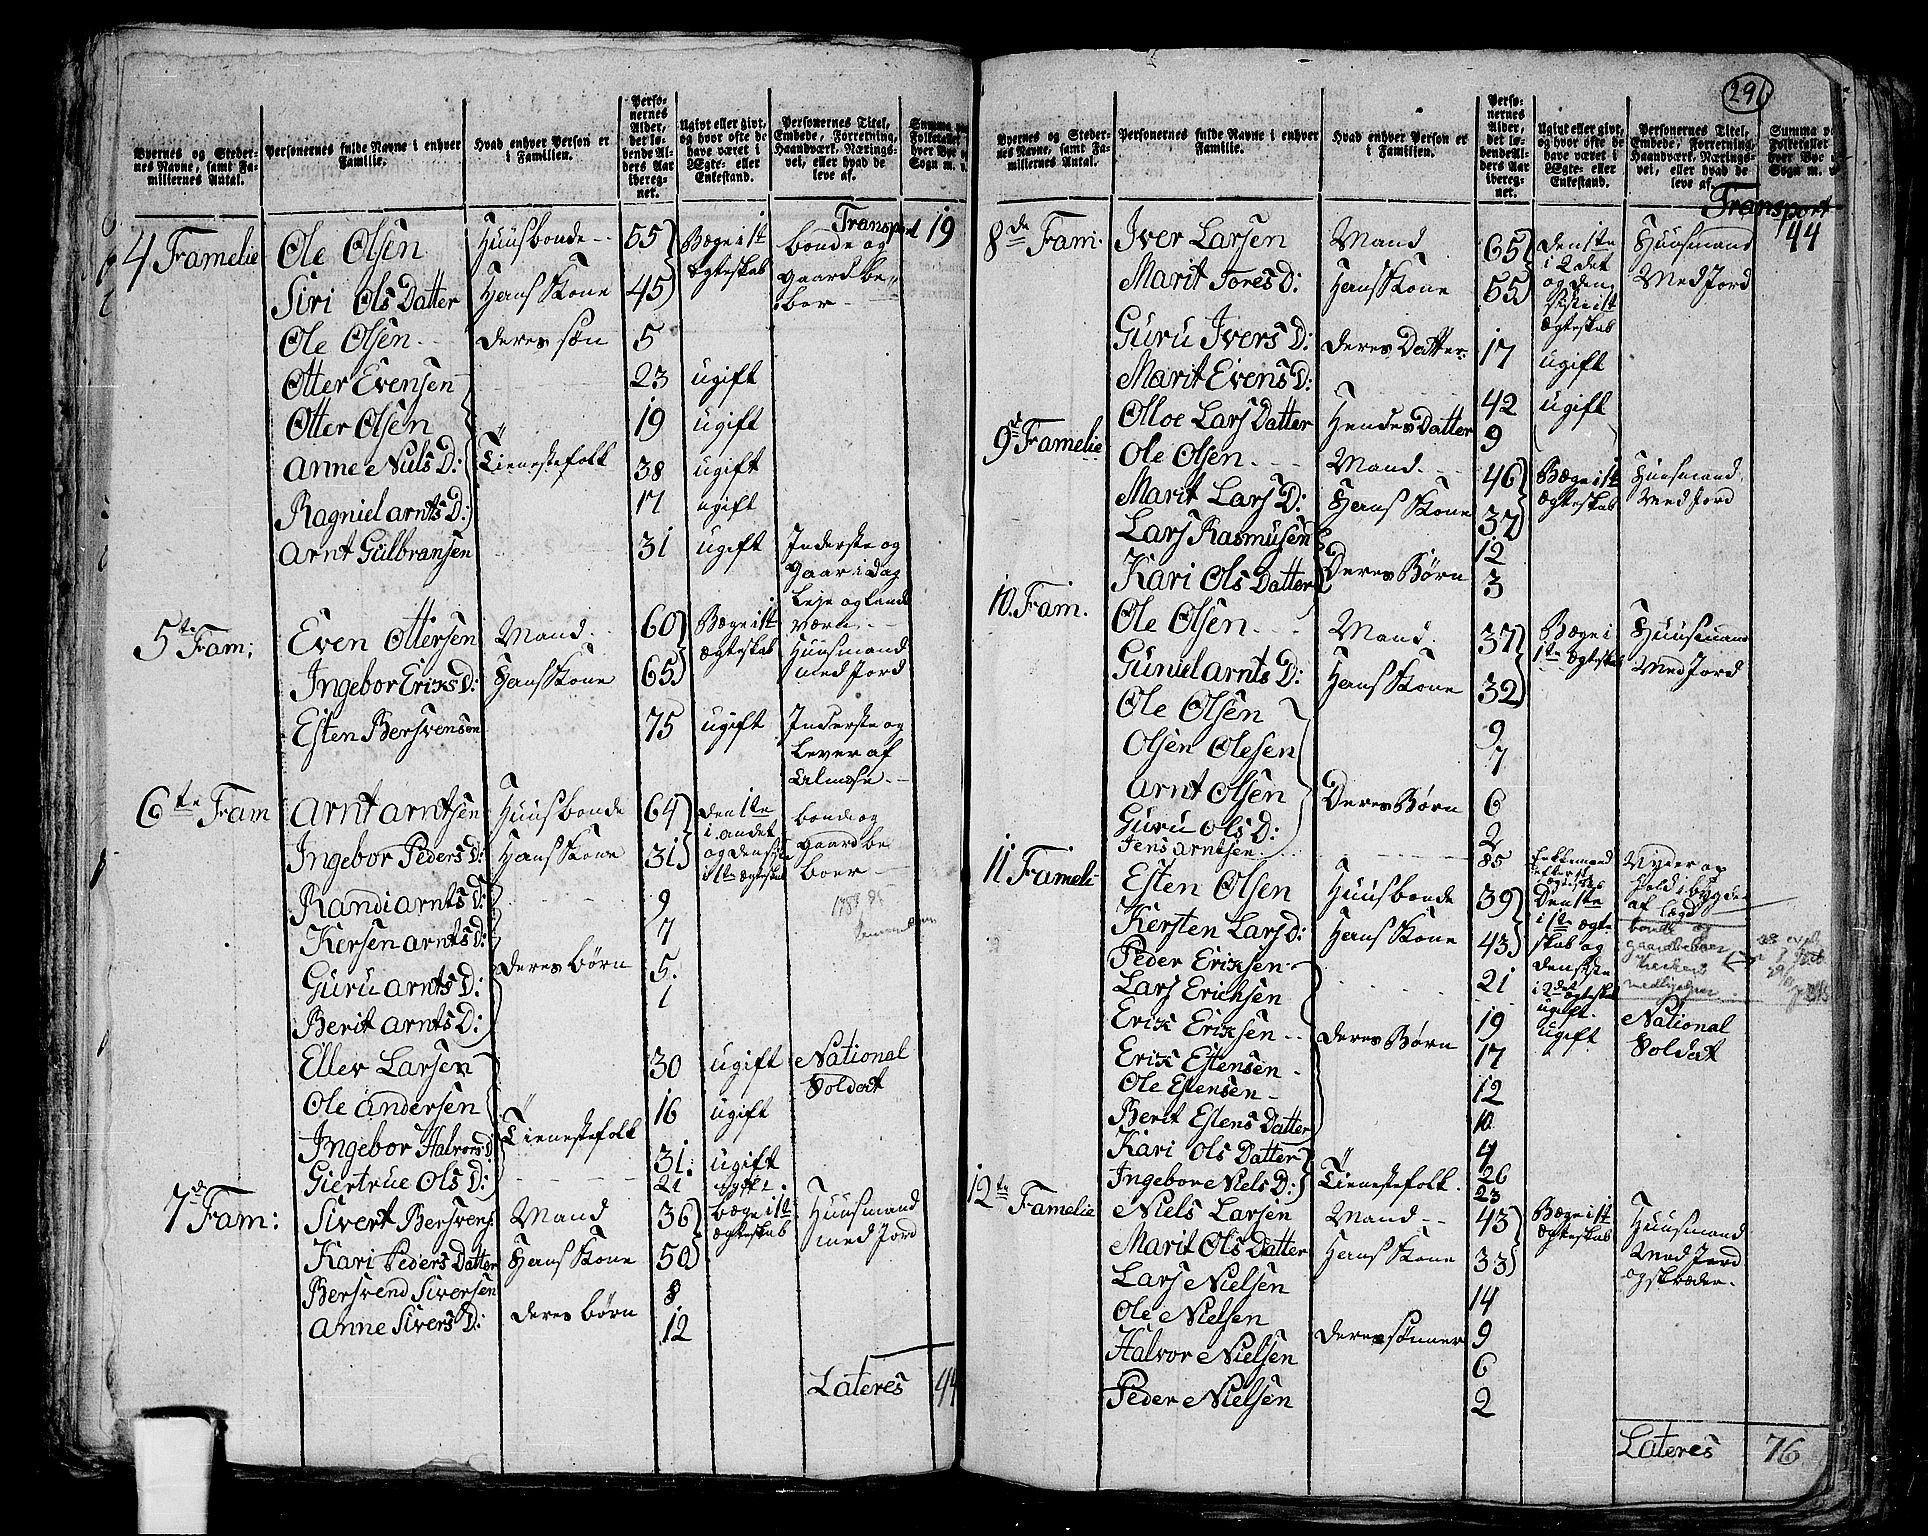 Byernes og Steder-
nes Navne, samt Fa-
miliernes Antal.
Personernes fulde Navne i enhver
Familie.
Hvad enhver Person er
i Familien.
Perso-
nernes
Alder,
det lø-
bende Al-
ders Aar
ibereg-
net.
Ugivt eller givt,
og hvor ofte de
have været i
Ægte- eller
Enkestand.
Personernes Titel,
Embede, Forretning,
Haandværk, Nærings-
vei, eller hvad de
leve af.
Transport 19
4 Framelie Ole Olsen Huusbonde 55 Bege i 1st Ægteskab bonde og gaard be-boer
Siri Ols Datter Hans Kone 45
Ole Olsen deres søn 5
Otter Evensen 23 ugift
Otter Olsen 19 ugift
Anne Niels D: Tienestefolk 38 ugift
Ragniel Arnts D: 17 ugift
Arnt Gulbransen 31 ugift Inderste og
5te Fam: Even Ottersen Mand 60 Bege i 1st Ægteskab Huusmand med Jord
Ingebor Erixs D: Hans Kone 65
Esten Bersvensen 75 ugift Inderste og Lever af Almose
6te Fam Arnt Arntsen Huusbonde 64 den 1te i andet bonde og gaard be boer
Ingebor Peders D: Hans Kone 31 og den i 1te Ægteskab
Randi Arnts D: 9
Kersen Arnts D: 7
Guru Arnts D: deres børn 5.
Berit Arnts D: 1
Eller Larsen 30 ugift National Soldat
Ole Andersen 16 ugift
Ingebor Halvors D: Tienestefolk 31. ugift
Giertrue Ols D: 21 ugift.
7de Fam: Sivert Bersvens Mand 36 bege i 1ste Ægteskab Huusmand med Jord
Kari Peders Datter Hans Kone 50
Bersvend Siversen 8
Anne Sivers D: deres børn 12
Lateres 44
296
Byernes og Steder-
nes Navne, samt Fa-
miliernes Antal.
Personernes fulde Navne i enhver
Familie.
Hvad enhver Person er
i Familien.
Perso-
nernes
Alder,
det lø-
bende Al-
ders Aar
ibereg-
net.
Ugivt eller givt,
og hvor ofte de
have været i
Ægte- eller
Enkestand.
Personernes Titel,
Embede, Forretning,
Haandværk, Nærings-
vei, eller hvad de
leve af.
Transport 44
8de Fam. Iver Larsen Mand 65 den 1te i 2det Huusmand Med Jord
Marit Tores D: Hans Kone 55 og den Ægteskab
Guru Ivers D: deres Datter 17 ugift
Marit Evens D: 42 ugift
Olloe Lars Datter Hendes Datter 9
9de Framelie Ole Olsen Mand 46 Bege i 1st Ægteskab Huusmand Med Jord
Marit Lars D: Hans Kone 37
Lars Rasmusen 12
Kari Ols Datter Deres Børn 3
10. Fam. Ole Olsen Mand 37 Bege i 1te Ægteskab Huusmand Med Jord
Guniel Arnts D: Hans Kone 32
Ole Olsen 9
Olsen Olesen 7
Arnt Olsen Deres Børn 6
Guru Ols D: 2
Jens Arntsen 85 Enkemand
11 Frameli Esten Olsen Huusbonde 39 Den 1te i 1te Ægte-skab og bonde og gaardbeboer
Kersten Lars D: Hans Kone 43 den i 2det Ægteskab
Peder Erixsen 21 ugift National Soldat
Lars Erichsen 19 ugift
Erix Erixsen deres Børn 17
Erix Estensen 12
Ole Estensen 10
Berit Estens Datter 4
Kari Ols Datter 26
Ingebor Niels D: Tienestefolk. 23
12te Framelie Niels Larsen Mand 43 Bege i 1st Ægteskab Huusmand Med Jord og skræder
Marit Ols Datter Hans Kone 33
Lars Nielsen 14
Ole Nielsen 9
Halvor Nielsen deres sønner 6
Peder Nielsen 2
Lateres 76